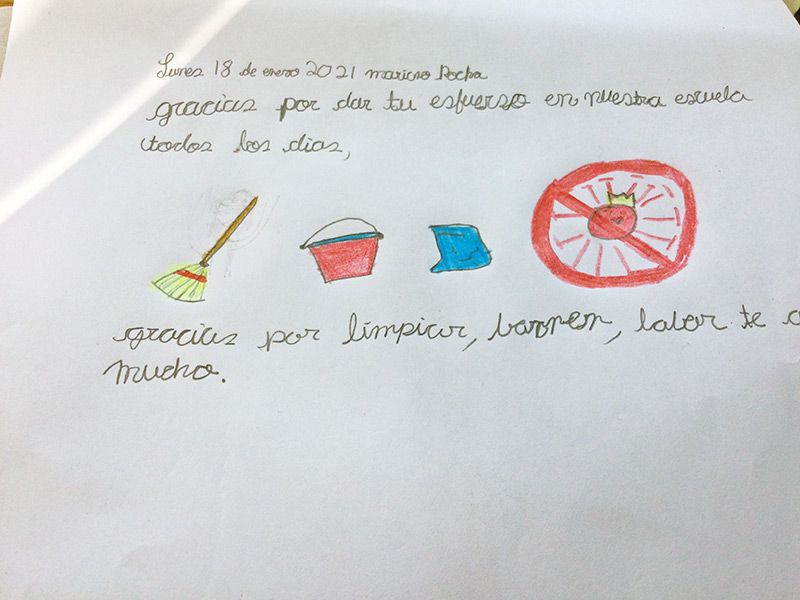 Lunes 18 de enero 2021 mariano Rocha
gracias por dar tu esfuerso en nuestra escuela
todos los dias,
gracias por limpiar, barrer, labar te
mucho.